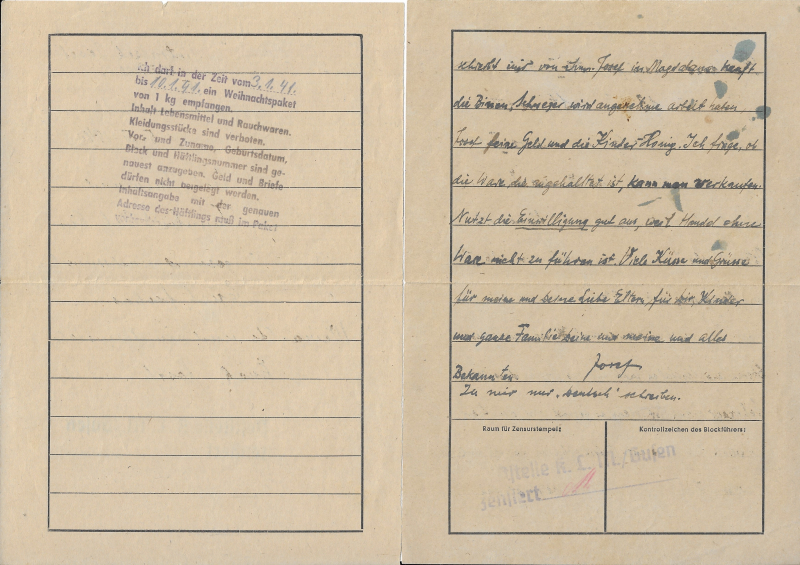 Ich darf in der Zeit vom 3.1.41.
bis 10.1.41. ein Weihnachtspaket
von 1 kg empfangen.
Inhalt Lebensmittel und Rauchwaren.
Kleidungsstücke sind verboten.
Vor- und Zuname, Geburtsdatum,
Block und Häftlingsnummer sind ge-
nauest anzugeben. Geld und Briefe
dürfen nicht beigelegt werden.
Inhaltsangabe mit der genauen
Adresse des Häftlings muß im Paket
schickt mir von Josef in
die Bienen, wird angenehme arbeit haben
Geld und die Kinder Honig. Ich frage, ob
die Ware ist, kann man verkaufen.
Nutzt die Einwilligung gut aus, weil Handel ohne
Ware nicht zu führen ist. Viele Küsse und Grüsse
für meine und deine Liebe Eltern, für dir, Kinder
und ganze Familie deine und meine und alles
Bekannten. Josef
Zu mir nur „deutsch" schreiben.
Raum für Zensurstempel:
Kontrollzeichen des Blockführers:
zensiert